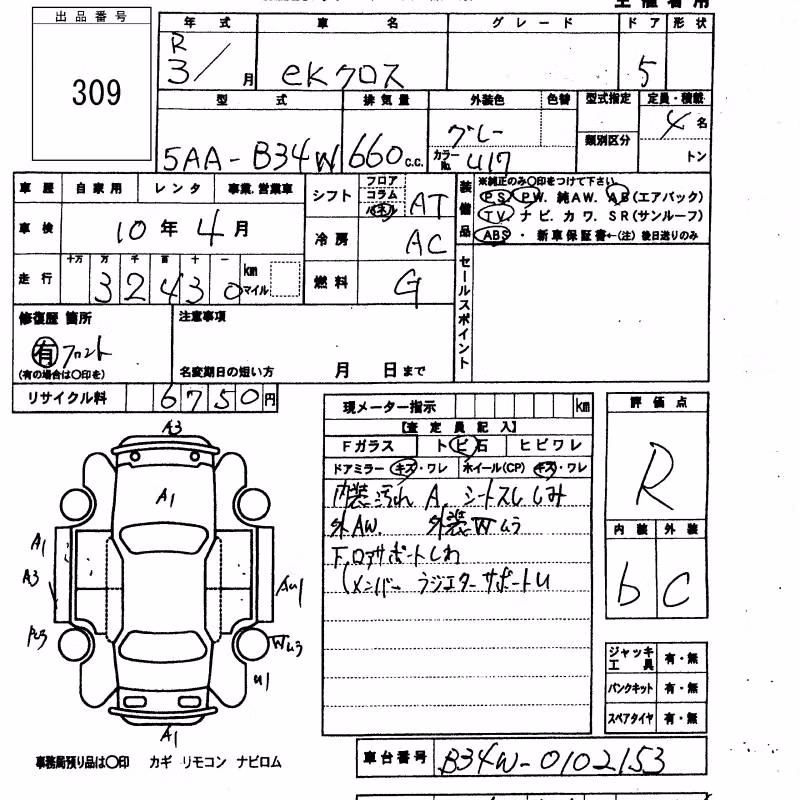 出品番号
309
年式 車名 グレード ドア 形状
R
3/ 月 eKクロス 5
型式 排気量 外装色 色替 型式指定 定員・積載
グレー 4 名
類別区分
5AA-B34W 660 c.c. カラーNo. U17 トン
車歴 自家用 レンタ 事業、営業車
車検 10年 4月
走行 十万 万 千 百 十 一
3 2 4 3 0 km マイル
シフト フロア コラム パネル AT
冷房 AC
燃料 G
装備品
※純正のみ○印をつけて下さい
PS. PW. 純AW. AB(エアバック)
TV. ナビ. カワ. SR(サンルーフ)
ABS・ 新車保証書←(注) 後日送りのみ
セールスポイント
修復歴 箇所
有 フロント
(有の場合は○印を)
注意事項
名変期日の短い方 月 日まで
リサイクル料 6 7 5 0 円
現メーター指示 km
【査定員記入】
Fガラス トビ石 ヒビワレ
ドアミラー キズ・ワレ ホイール(CP) キズ・ワレ
内装汚れ A. シートスレ しみ
外AW. 外装Wムラ
F.ロアサポートしわ
(メンバー ラジエターサポートU
評価点
R
内装 外装
b C
ジャッキ工具 有・無
パンクキット 有・無
スペアタイヤ 有・無
A3
A1
A1
A3
AU1
Wムラ
U1
A1
事務局預り品は○印 カギ リモコン ナビロム
車台番号 B34W-0102153